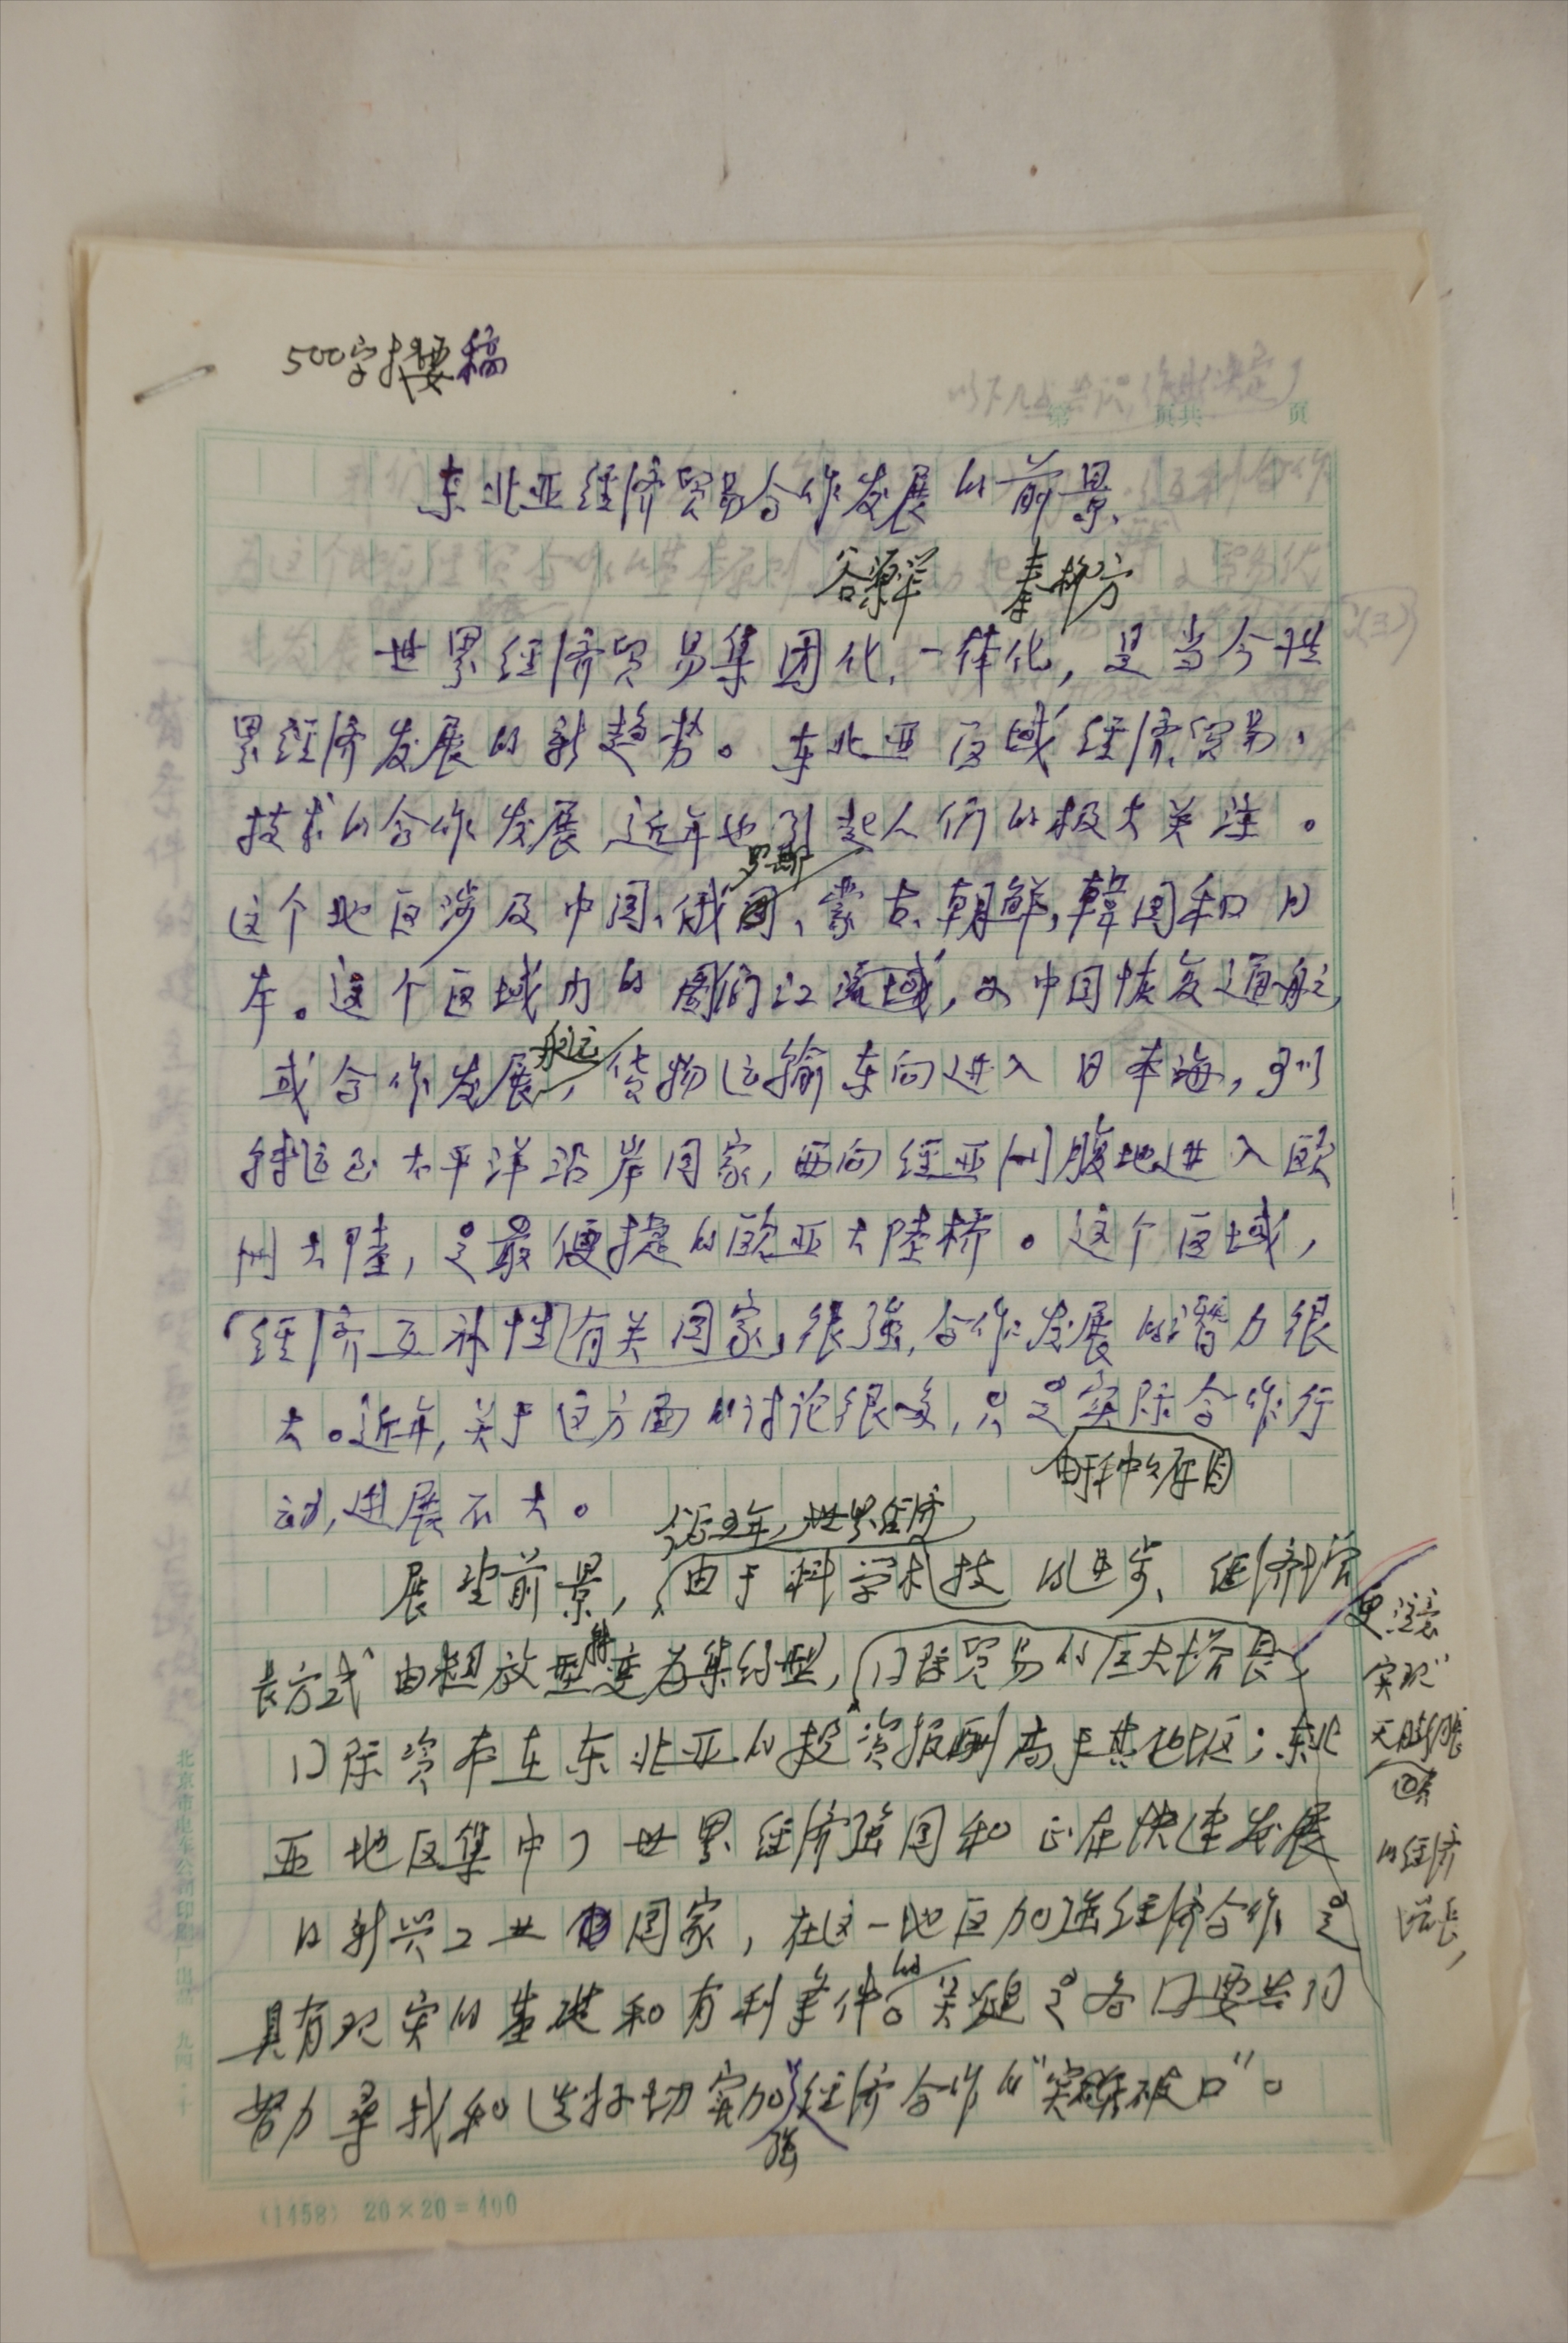 500字摘要稿
第 页共 页
东北亚经济贸易合作发展的前景
谷源洋 秦柳方
世界经济贸易集团化、一体化，是当今世
界经济发展的新趋势。东北亚区域经济、贸易、
技术的合作发展近年也引起人们的极大关注。
罗斯
这个地区涉及中国、俄国、蒙古、朝鲜、韩国和日
本。这个区域内的图们江流域，如中国恢复通航，
航运
或合作发展，货物运输东向进入日本海，可以
转运到太平洋沿岸国家，西向经亚洲腹地进入欧
洲大陆，是最便捷的欧亚大陆桥。这个区域，
经济互补性有关国家，很强，合作发展的潜力很
大。近年，关于这方面的讨论很多，只是实际合作行
由于种种原因
动，进展不大。
今后五年，世界经济
展望前景，由于科学技术的进步、经济增
长方式由粗放型转变为集约型，国际贸易的巨大增长，
更注意
实现
无通胀
的经济
增长，
国际资本在东北亚的投资报酬高于其他地区；东北
亚地区集中了世界经济强国和正在快速发展
的新兴工业国家，在这一地区加强经济合作是
具有现实的基础和有利条件的。关键是各国要共同
努力寻找和选择切实加强经济合作的“突破口”。
(1458) 20×20=400